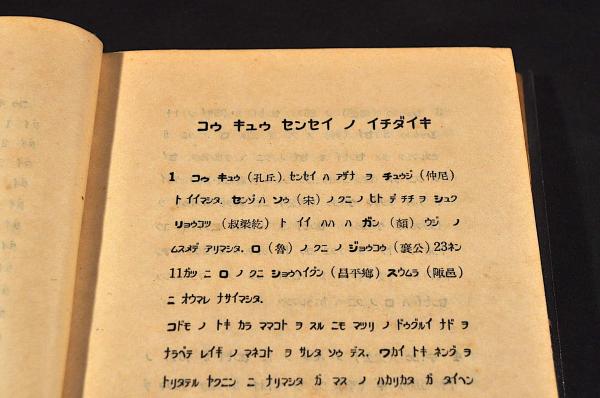 コゥ キュゥ センセイ ノ イチダイキ
1 コゥ キュゥ (孔丘) センセイ ハ アザナ ヲ チュウジ (仲尼)
ト イイマシタ. センゾ ハ ソウ (宋) ノ クニ ノ ヒト デ チチ ヲ シュク
リョウコツ (叔梁紇) ト イイ ハハ ハ ガン (顔) ウジ ノ
ムスメ デ アリマシタ. ロ (魯) ノ クニ ノ ジョウコウ (襄公) 23ネン
11ガツ ニ ロ ノ クニ ショウヘイグン (昌平郷) スウムラ (陬邑)
ニ オウマレ ナサイマシタ.
コドモ ノ トキ カラ ママコト ヲ スル ニモ マツリ ノ ドウグルイ ナド ヲ
ナラベテ レイギ ノ マネコト ヲ サレタ ソウ デス. ワカイ トキ ネング ヲ
トリタテル ヤクニン ニ ナリマシタ ガ マス ノ ハカリカタ ガ タイヘン